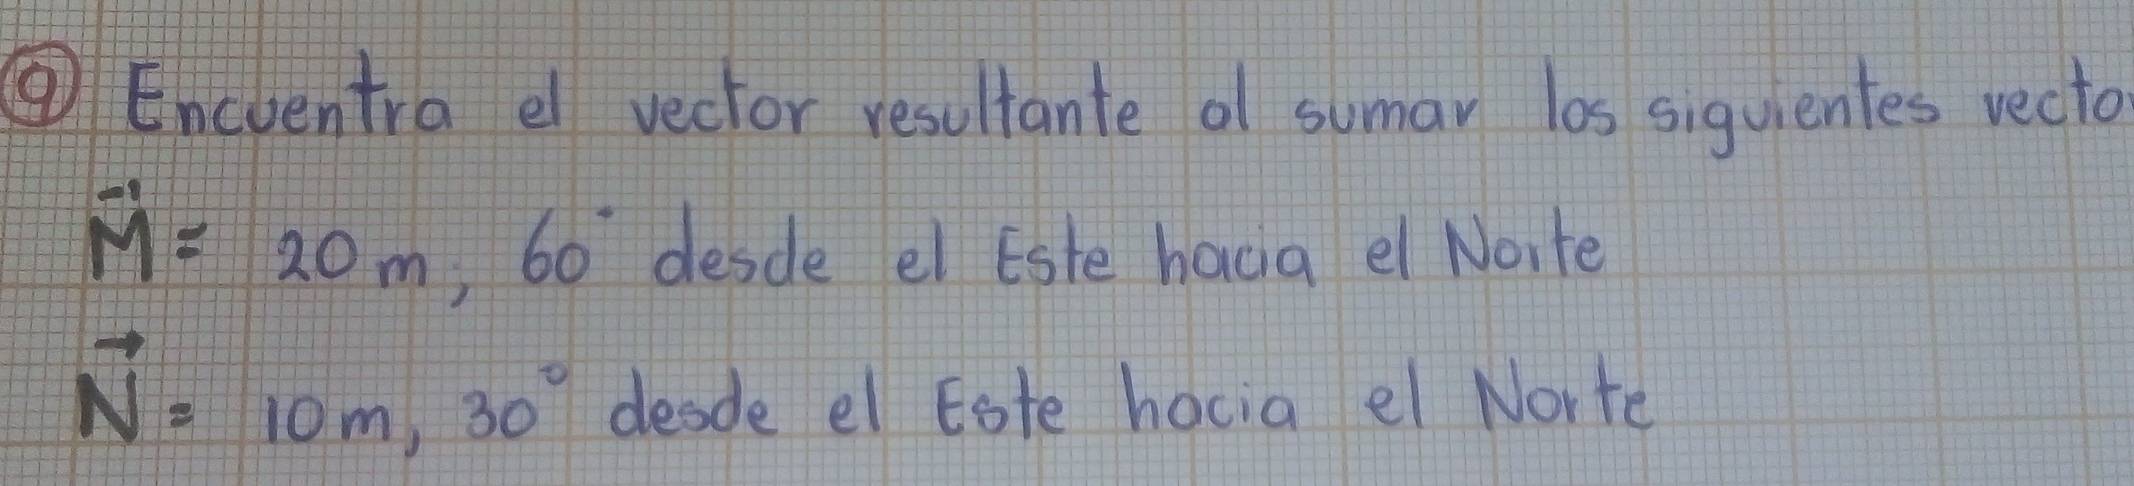 9 Encuentra el vector resultante al sumar los siguientes vecto
M = 20 m, 60° desde el Este hacia el Norte
N = 10 m, 30° desde el Este hacia el Norte